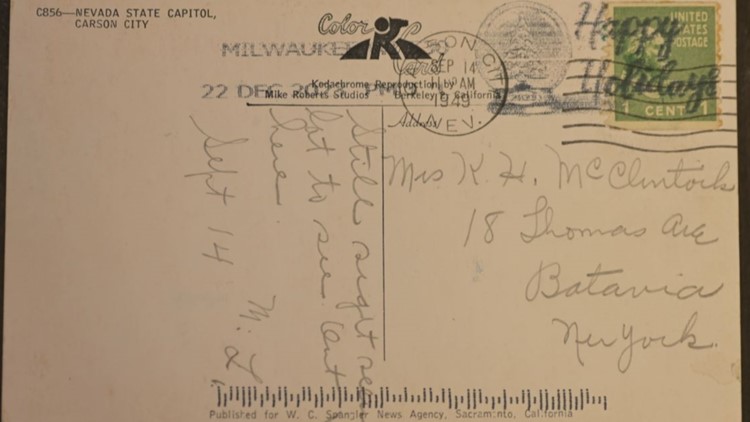 C856—NEVADA STATE CAPITOL,
CARSON CITY
Color
Card
MILWAUKEE
22 DEC 20 PM
Kodachrome Reproduction by
Mike Roberts Studios Berkeley 2, California
SON CITY
SEP 14
AM
1949
NEV.
Happy
Holidays
UNITED
STATES
POSTAGE
1 CENT 1
Address
Mrs K. H. McClintock
18 Thomas Ave
Batavia
New York.
Still sight see
but to see
here.
Sept 14 M. L.
Published for W. C. Spangler News Agency, Sacramento, California